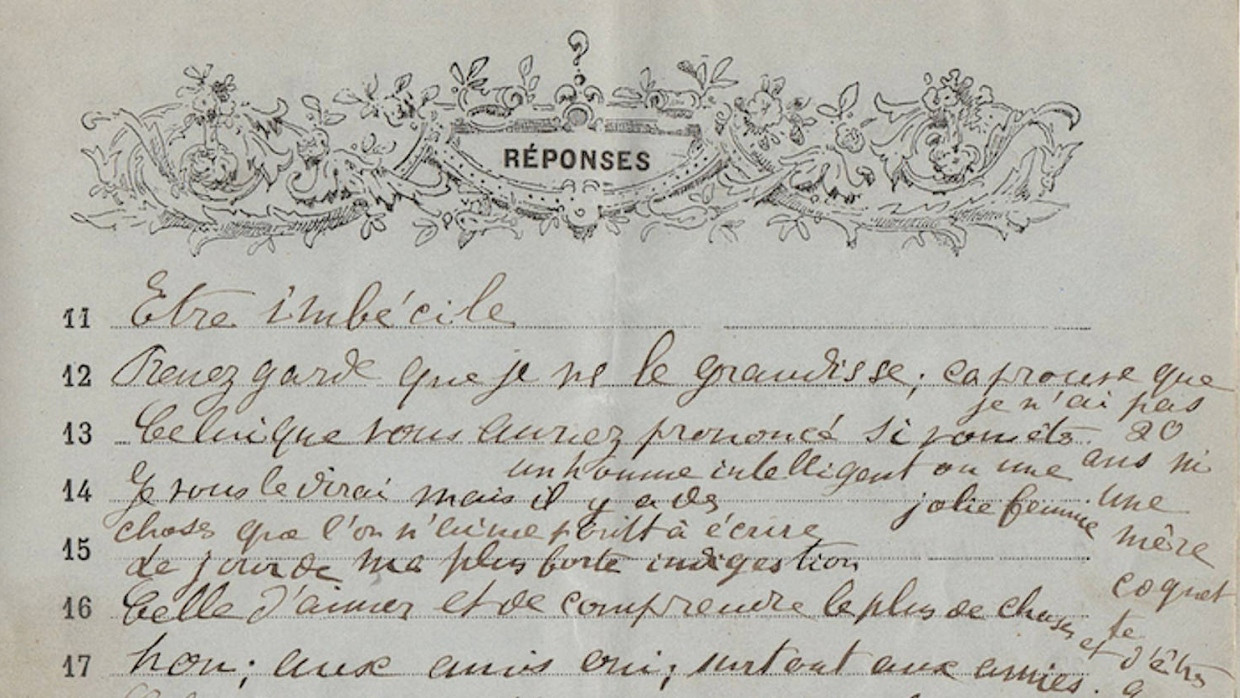 ?
RÉPONSES
11 Etre imbécile
12 Prenez garde que je ne le grandisse; ca prouve que
je n'ai pas
13 Celui que vous auriez prononcé si vous êtes 20
un homme intelligent ou une ans ni
14 Je vous le dirai mais il y a des jolie femme. une
choses que l'on n'aime point à écrire mère
15 Le jour de ma plus forte indigestion
coquet
16 Celle d'aimer et de comprendre le plus de choses et te
d'êtr
17 Non; aux amis oui; surtout aux amies.